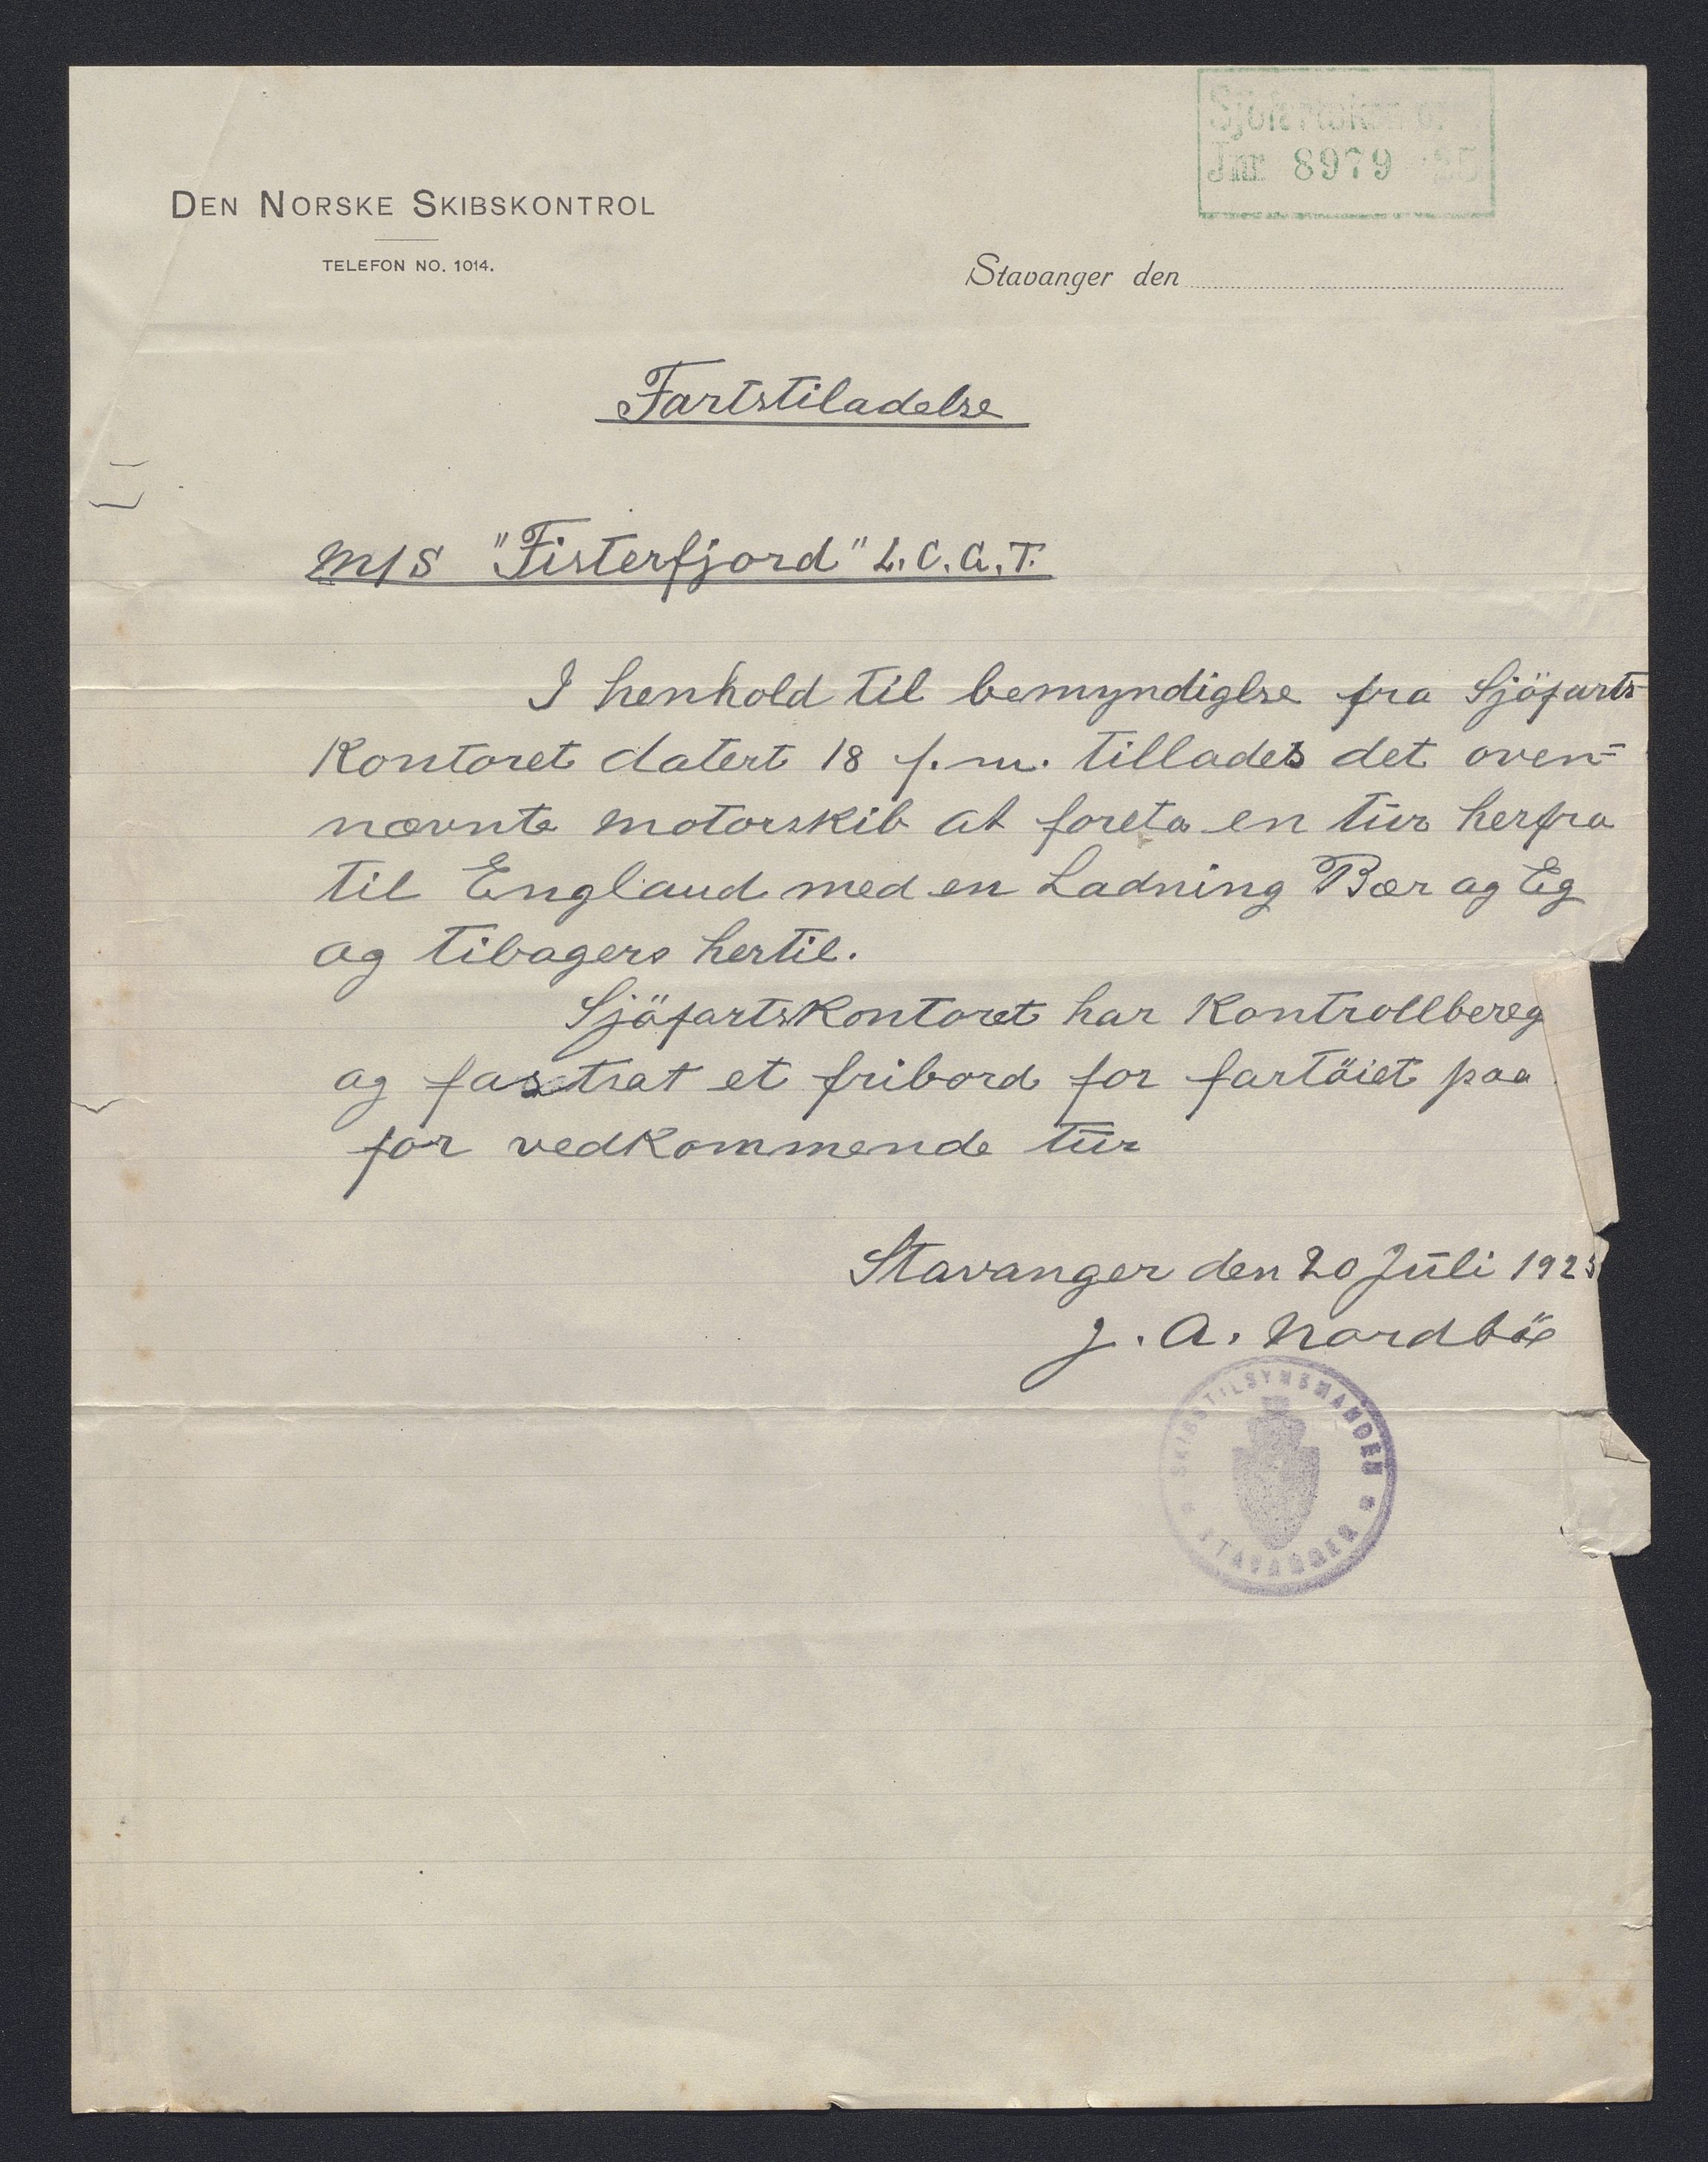 Sjöfartskontoret
Jnr 8979 25
DEN NORSKE SKIBSKONTROL
TELEFON NO. 1014.
Stavanger den
Fartstiladelse
M/S "Fisterfjord" L.C.G.T.
I henhold til bemyndiglse fra Sjöfarts-
Kontoret datert 18 f.m. tillades det oven=
nævnte motorskib at foreta en tur herfra
til England med en Ladning Bær og Eg
og tibagers hertil.
Sjöfartskontoret har Kontrollbereg
og fastsat et fribord for fartöiet paa
for vedkommende tur
Stavanger den 20 Juli 1925
J. A. Nordbö
SKIBSTILSYNSMANDEN
STAVANGER